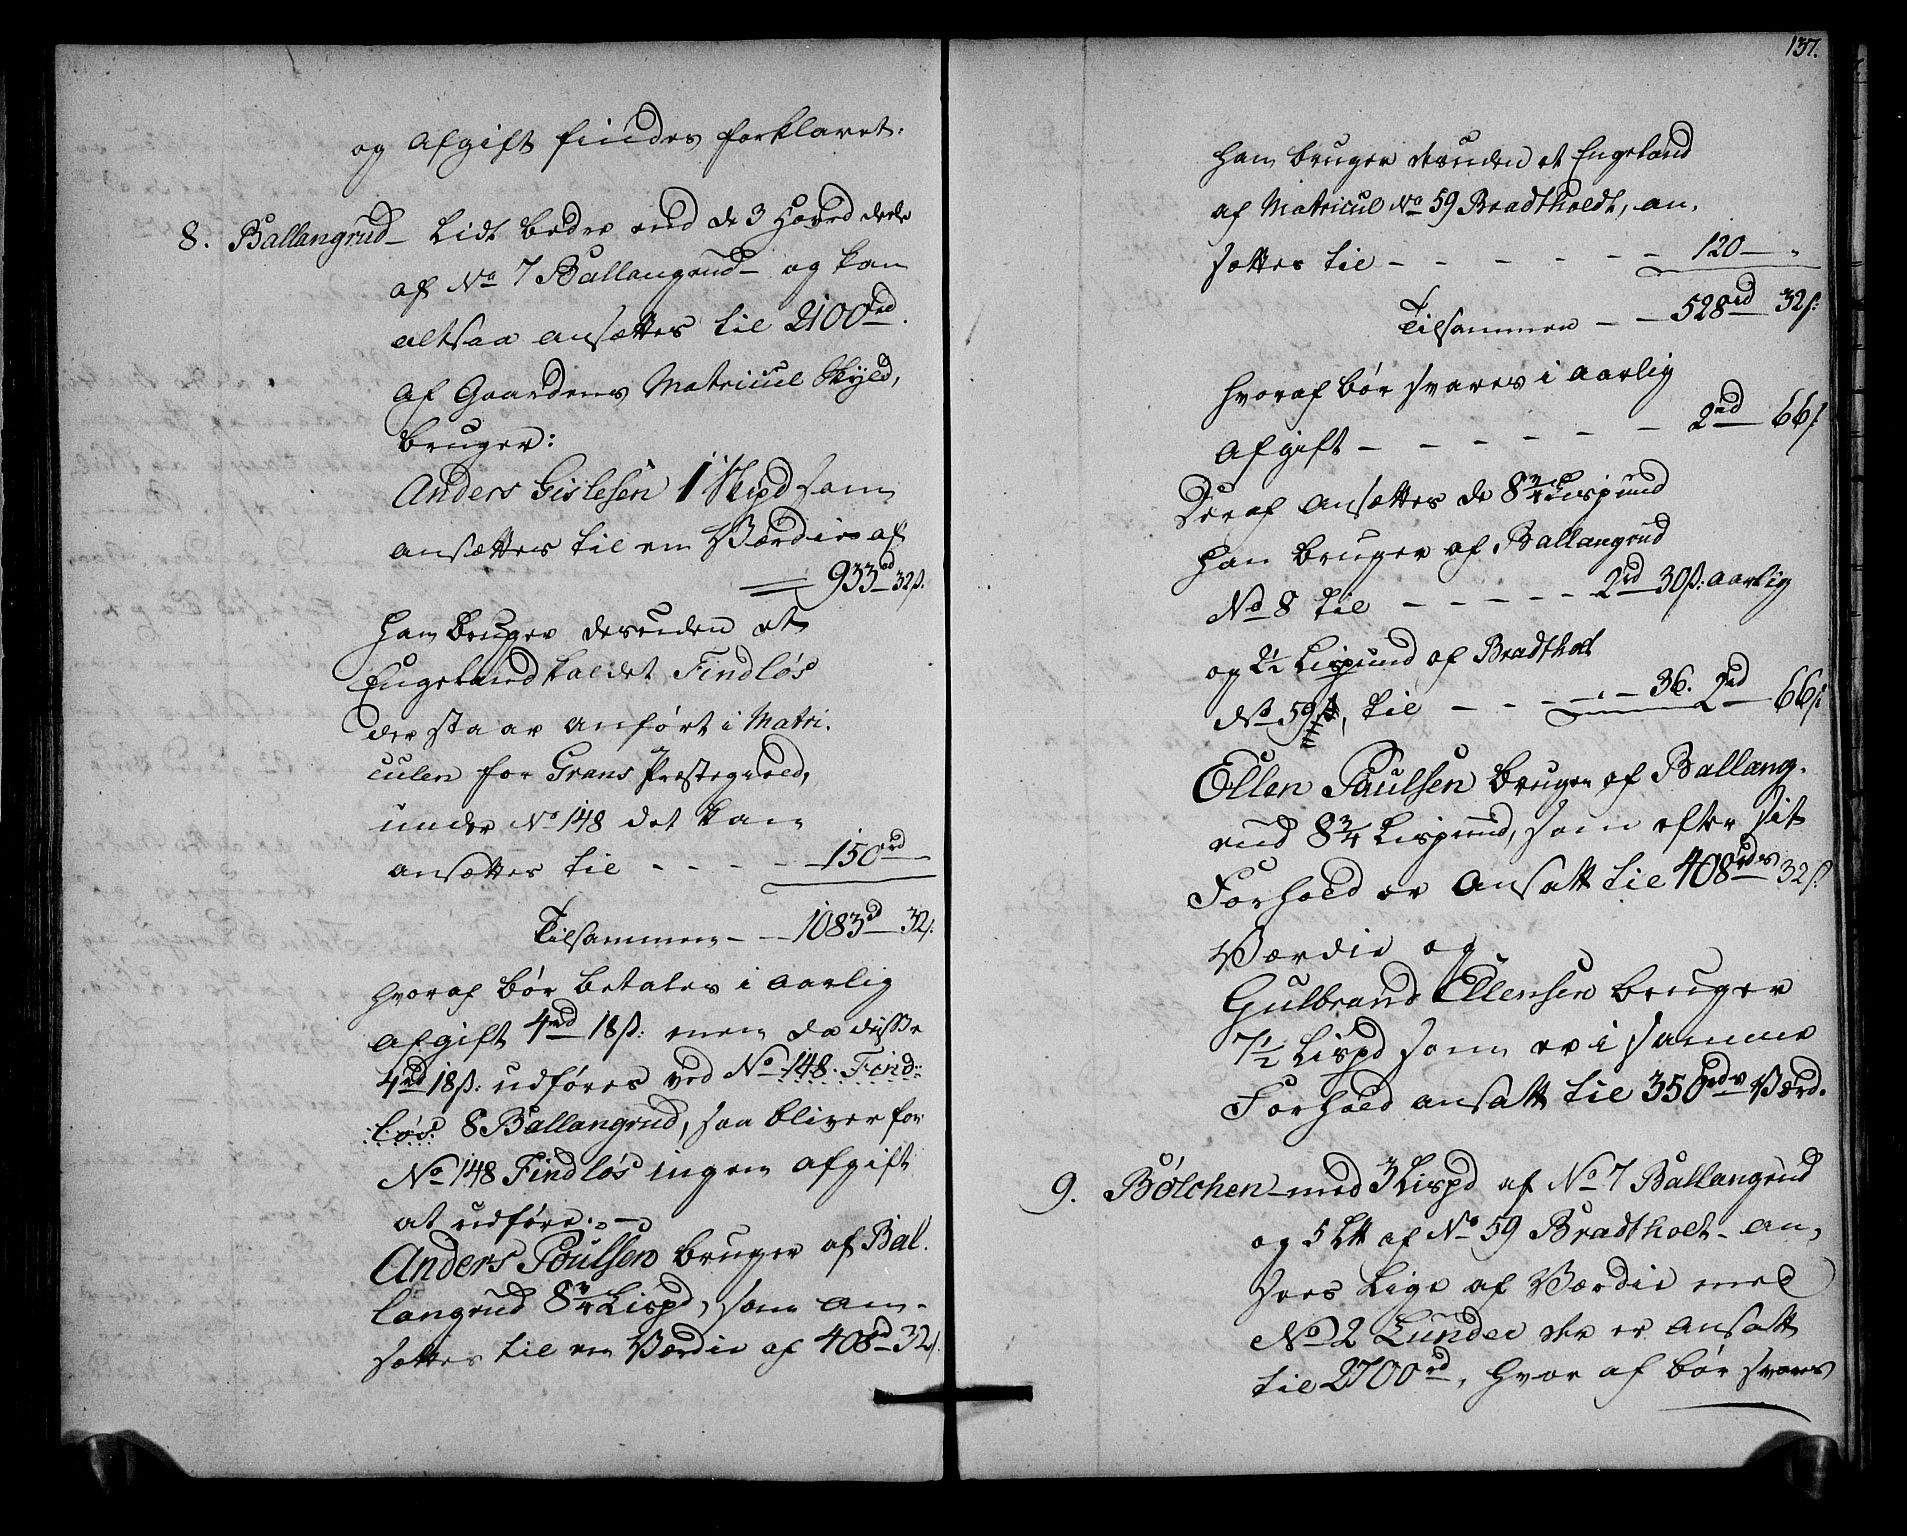 og Afgift findes forklaret.
8. Ballangrud – Lidt bedre end de 3 Hoved deele
af No 7 Ballangrud – og kan
altsaa ansættes til 2100rd.
Af Gaardens Matricul Skyld,
bruger:
Anders Gislesen 1 Skpd som
ansættes til en Værdie af
933rd 32ß.
Han bruger desuden et
Engeland kaldet Findløs
der staar anført i Matri-
culen for Grans Præstegield,
under No 148 det kan
ansættes til - - - - 150rd -
Tilsammen - - 1083rd 32ß.
hvoraf bør betales i aarlig
afgift 4rd 18ß: men da disse
4rd 18ß: udføres ved No 148. Find-
løs. 8 Ballangrud, saa bliver for
No 148 Findløs ingen afgift
at udføre. -
Anders Poulsen bruger af Bal-
langrud 8 3/4 Lispd, som an-
sættes til en Værdie af 408rd 32ß.
137.
Han bruger desuden et Engeland
af Matricul No 59 Bradtholdt, an-
sættes til - - - - - - 120 - "
Tilsammen - - 528rd 32ß:
hvoraf bør svares i aarlig
Afgift - - - - - - 2rd 66ß
Deraf ansættes de 8 3/4 Lispund
han bruger af Ballangrud
No 8 til - - - - - 2rd 30ß: aarlig
og 2 1/2 Lispund af Bradtholt
No 59, til - - - - - 36. 2rd 66ß
Ellen Paulsen bruger af Ballang-
rud 8 3/4 Lispund, som efter sit
Forhold er Ansatt til 408rds 32ß:
Værdie og
Gulbrand Ellensen bruger
7 1/2 Lispd som er i samme
Forhold ansatt til 350rdv Værd.
9. Bølchen – med 3 Lispd af No 7 Ballangrud
og 5 Ltt af No 59 Bradtholt – an-
sees Lige af Værdie med
No 2 Lunder der er ansatt
til 2700rd, hvor af bør svares